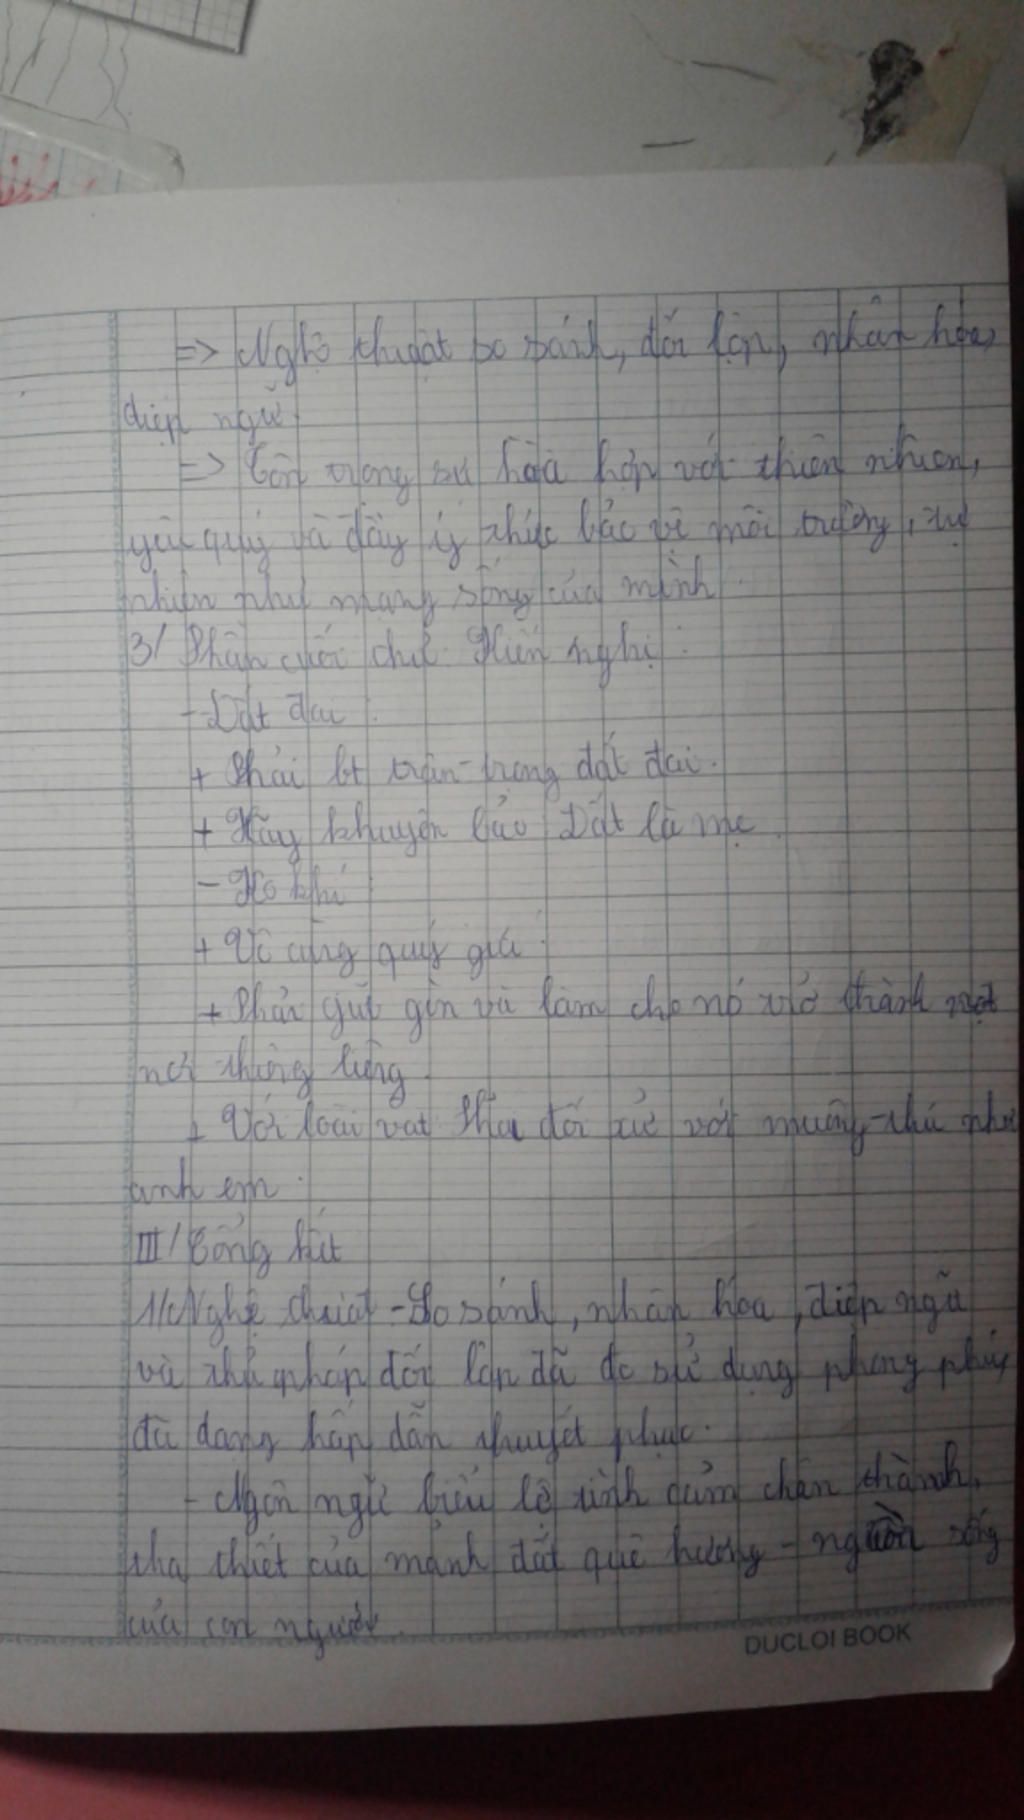 => Nghệ thuật so sánh, đối lập, nhân hóa,
điệp ngữ.
=> Tôn trọng sự hòa hợp với thiên nhiên,
yêu quý và đầy ý thức bảo vệ môi trường, tự
nhiên như mạng sống của mình.
3/ Phần cuối chú Kiến nghị:
- Đất đai:
+ Phải bt trân trọng đất đai.
+ Hãy khuyên bảo Đất là mẹ.
- Ko khí
+ Vô cùng quý giá.
+ Phải giữ gìn và làm cho nó trở thành một
nơi thiêng liêng.
+ Với loài vật đối xử với muông thú như
anh em.
III/ Tổng kết
1/ Nghệ thuật - So sánh, nhân hóa, điệp ngữ
và thủ pháp đối lập đã đc sử dụng phong phú,
đa dạng hấp dẫn thuyết phục.
- Ngôn ngữ biểu lộ tình cảm chân thành,
tha thiết của mảnh đất quê hương - nguồn sống
của con người.
DUCLOI BOOK